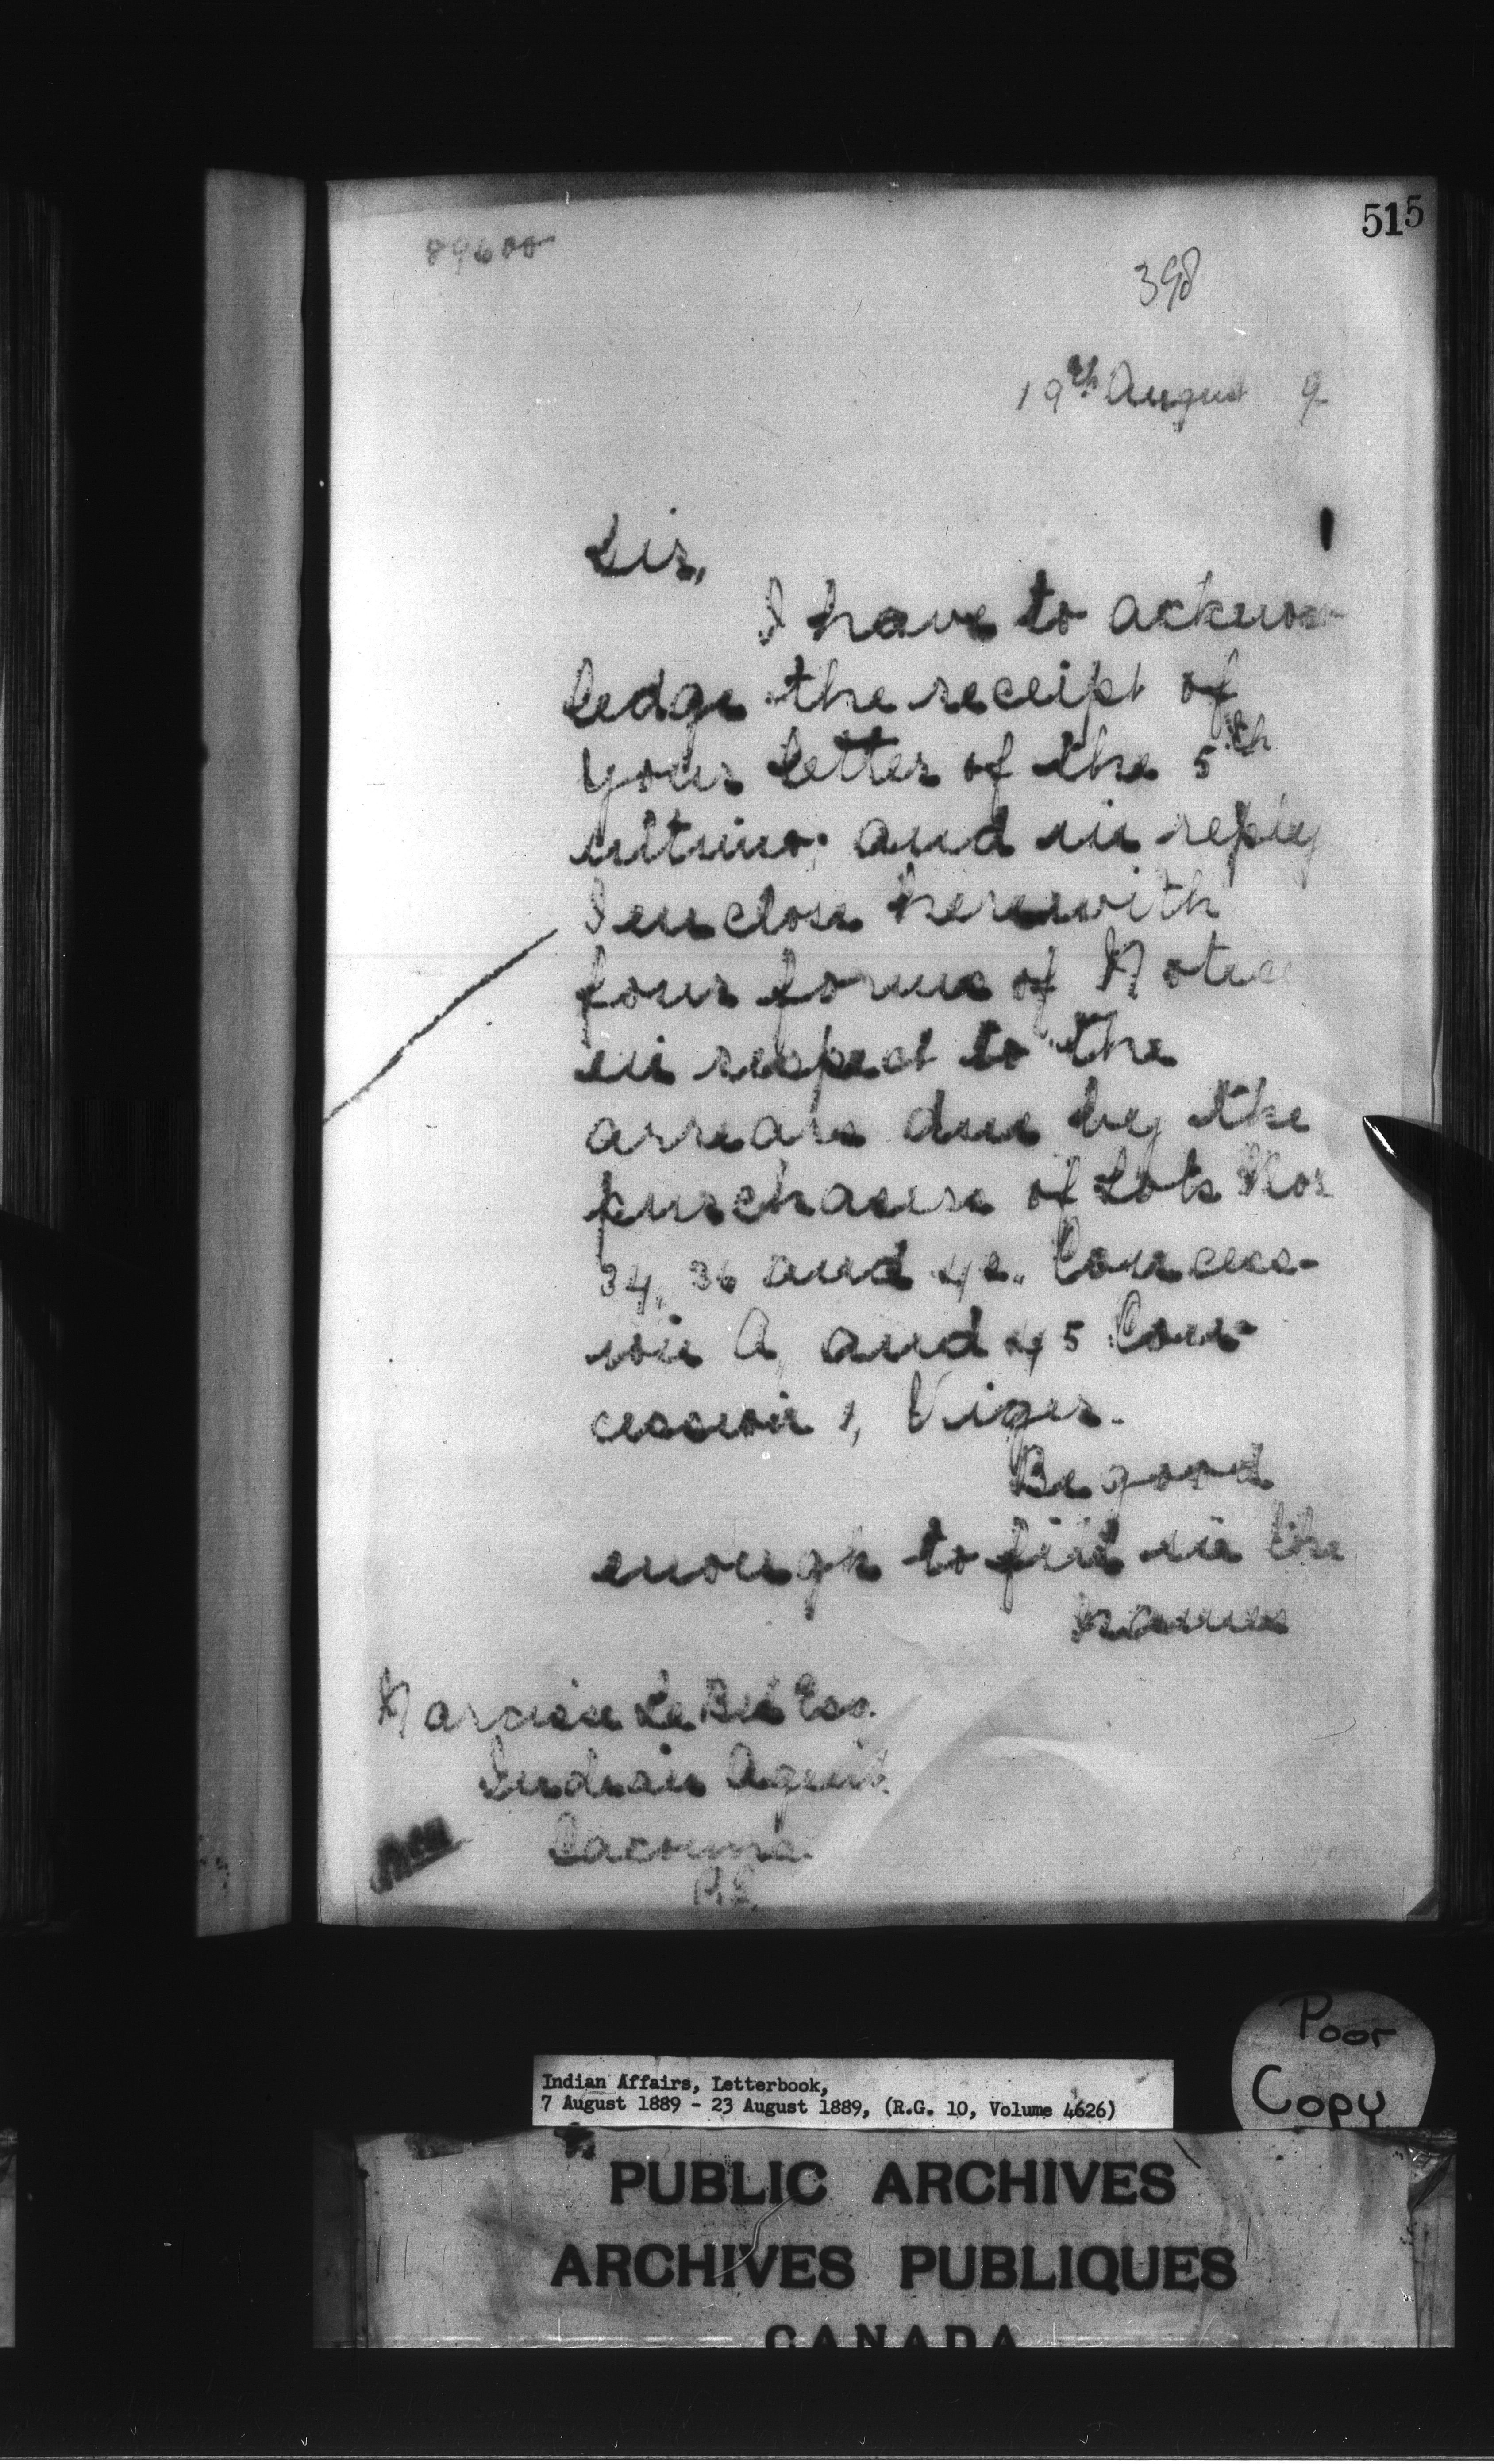 515
89600
398
19th August 9
Sir,
I have to acknow-
ledge the receipt of
your letter of the 5th
ultimo; and in reply
I enclose herewith
four forms of Notice
in respect to the
arrears due by the
purchasers of Lots Nos
34, 36 and 42. Conces-
sion A, and 45 Con-
cession 1, Viger.
Be good
enough to fill in the
names
Narcisse Le Bel Esq.
Indian Agent
Cacouna
P.Q.
Poor
Copy
Indian Affairs, Letterbook,
7 August 1889 - 23 August 1889, (R.G. 10, Volume 4626)
PUBLIC ARCHIVES
ARCHIVES PUBLIQUES
CANADA